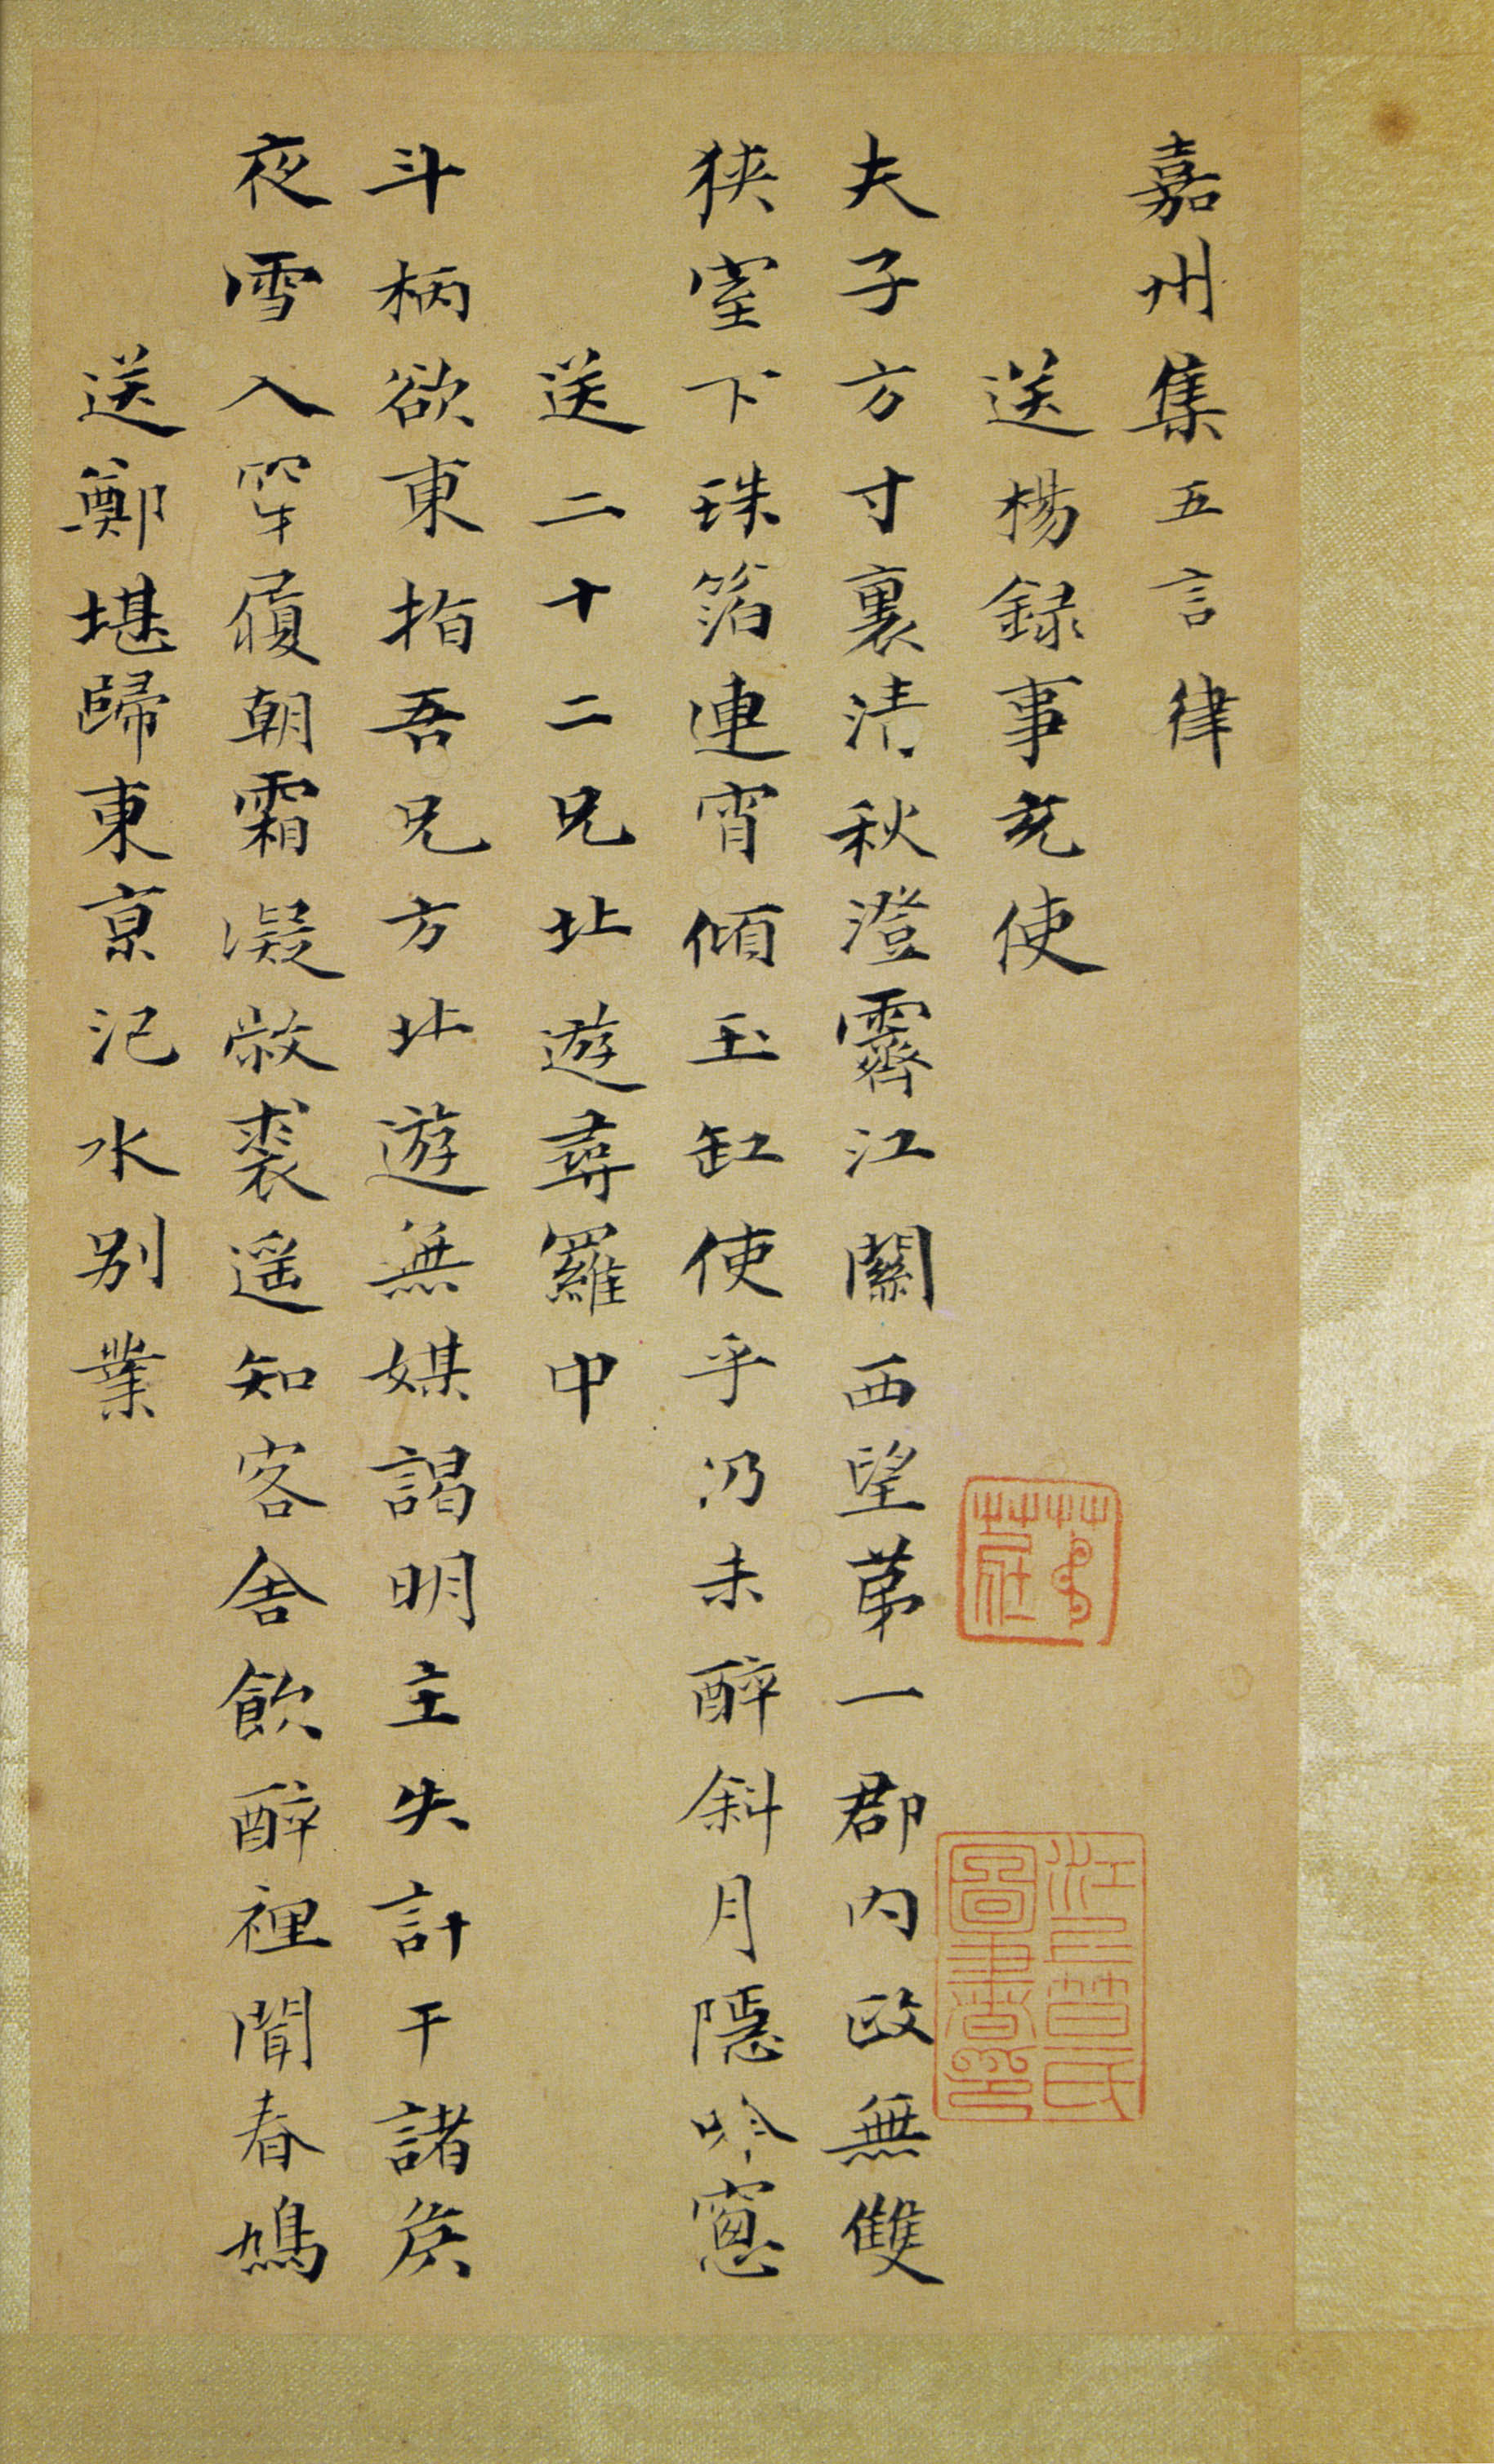 嘉州集五言律
送楊録事充使
夫子方寸裏清秋澄霽江關西望苐一郡内政無雙
狭室下珠箔連宵傾玉缸使乎仍未醉斜月隱吟窻
送二十二兄北遊尋羅中
斗柄欲東指吾兄方北遊無媒謁明主失計干諸侯
夜雪入穿履朝霜凝敝裘遥知客舍飲醉裡聞春鳩
送鄭堪歸東亰汜水别業
江上笪氏圖書印